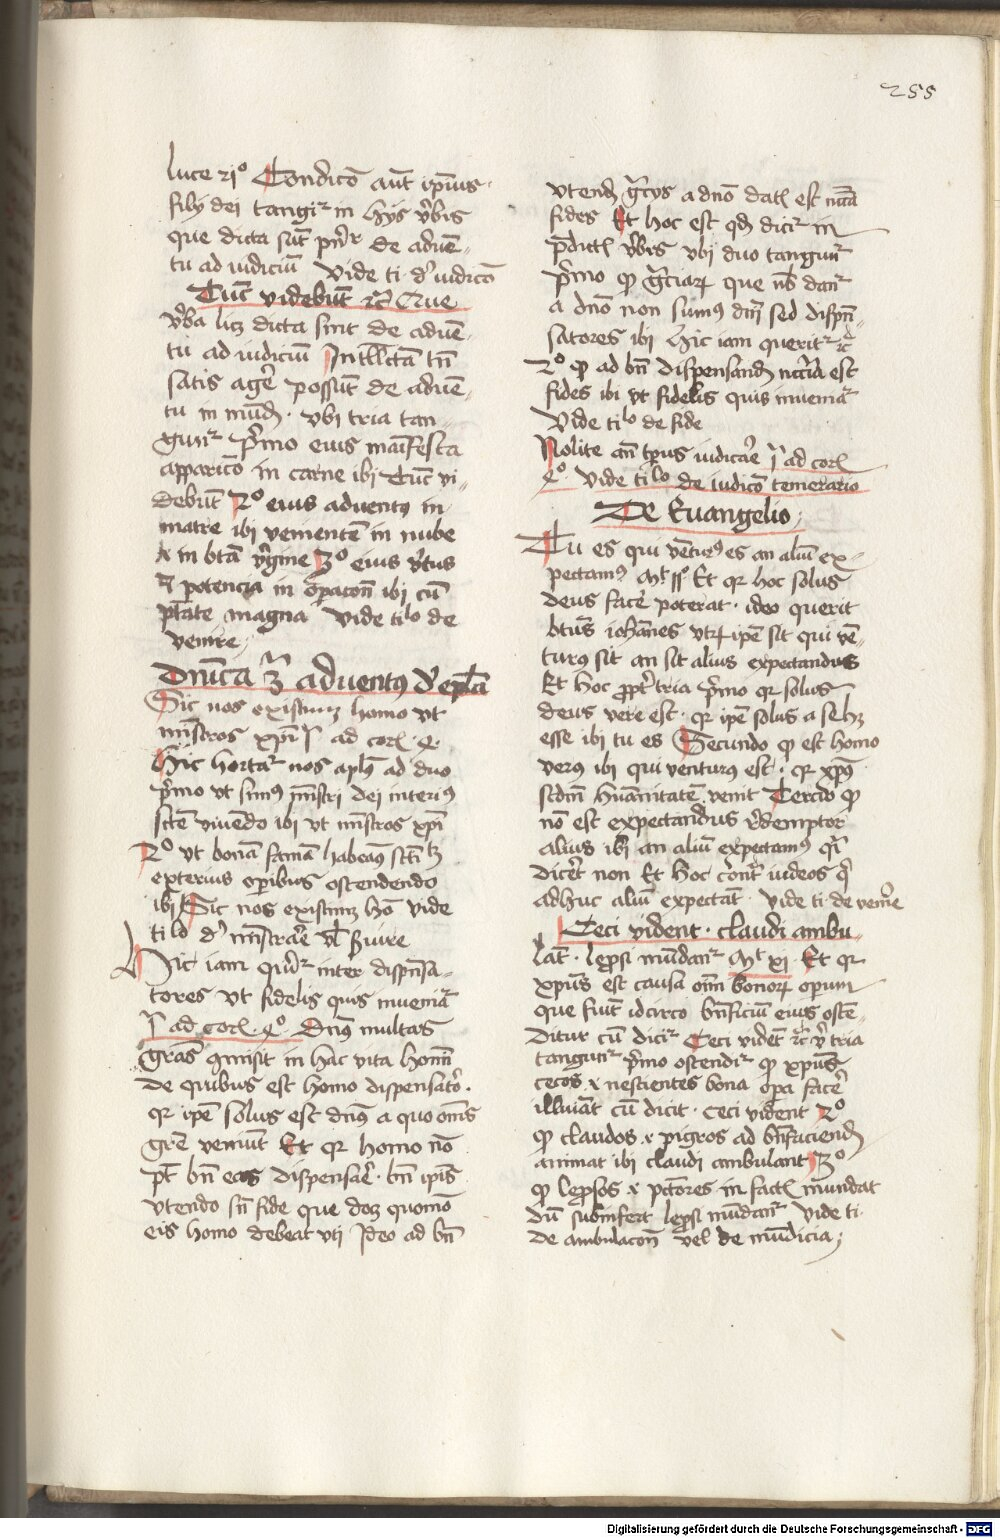 255
luce 21º Condicō aūt ip̄ius
filij dei tangit᷑ in hijs v̄bis
que dicta sūt pn̄r de aduē-
tu ad iudiciū vide ti dʼ iudicō
Tūc videbūt ⁊c̄ Crue
v̄ba licꝫ dicta sint de aduē-
tu ad iudiciū Intll̄cta tn̄
satis agē possūt de aduē-
tu in mūdū · vbi tria tan-
gunt᷑ p̄mo eius manifesta
apparicō in carne ibi Tūc vi-
debūt 2º eius aduentꝰ in
matre ibi venientē in nube
⁊ in btā v̄gine 3º eius v̄tus
⁊ potencia in op̄acōn ibi cū
pt̄ate magna vide tilo de
venire
Dn̄ica 3ᷓ aduentꝰ dʼ epl̄a
Sic nos existimꝫ homo vt
mīstros xp̄i I ad corꝭ · 4 ·
Hic hortat᷑ nos apl̄s ad duo
p̄mo vt simꝰ mīstri dei interiꝰ
sctē viuendo ibi vt mīstros xp̄i
2º vt bonā famā habeaꝰ
exterius op̄ibus ostendendo
ibi Sic nos existimꝫ hō vide
tilo dʼ mīstrar̄e vl̄ s̄uire
Hic iam quer̄it᷑ inter dispn̄sa-
tores vt fidelis quis inueniat᷑
I ad corꝭ · 4º Dn̄s multas
gr̄as ꝯmisit in hac vita homī
de quibus est homo dispensatoꝛ ·
qꝛ ip̄e solus est dn̄s a quo om̄s
gr̄e veniūt Et qꝛ homo nō
pt̄ bn̄ eas dispensar̄e · bn̄ ip̄is
vtendo sn̄ fide que docꝫ quomō
eis homo debeat vti Ideo ad bn̄
vtendū gr̄cijs a dn̄o datꝭ est
fides Et hoc est qd̄ dicit᷑ in
p̄dictꝭ v̄bis vbi duo tangunt᷑
p̄mo ꝙ gr̄ciarꝝ que nob̄ dant᷑
a dn̄o non sumꝰ dn̄i sed dispn̄-
satores ibi Hic iam querit᷑ ⁊c̄
2º ꝙ ad bn̄ dispensandū nccīa est
fides ibi vt fidelis quis inueniat᷑
vide tilo de fide
Nolite an̄ tp̄us iudicar̄e I ad corꝭ
4º · vide tilo de iudicō temerario
De Euangelio
Tu es qui vētuꝰ es an aliū ex-
pectamꝰ Mt Et qꝛ hoc solus
deus facē poterat · ideo querit
btūs ioh̄annes vtrꝝ ip̄e sit qui vē-
turꝰ sit an sit alius expectandus
Et hoc ꝓpt̄ tria p̄mo qꝛ solus
deus vere est · qꝛ ip̄e solus a se hꝫ
esse ibi tu es Secundo ꝙ est homo
verꝰ ibi qui venturꝰ est · qꝛ xp̄s
scdm̄ huānitatē venit Tercio ꝙ
nō est expectandus rʼdemptor
alius ibi an aliū expectamꝰ qͣi
dicēt non Et hoc cōntͣ iudeos qͥ
adhuc aliū expectāt · vide ti de venīre
Ceci vident · claudi ambu-
lāt · lepͦsi mūdant᷑ Mt xi · Et qꝛ
xp̄us est causa oīm bonorꝝ operum
que fiūt idcirco bn̄ficiū eius ostē-
ditur cū dicit᷑ Ceci vidēt ⁊c̄ v̄ tria
tangunt᷑ p̄mo ostendit᷑ ꝙ xp̄us
cecos ⁊ nescientes bona op̄a facē
illūiāt cū dicit · ceci vident 2º
ꝙ claudos ⁊ pigros ad bn̄faciendū
animat ibi claudi ambulant 3º
ꝙ lepͦsos ⁊ pctōres in factꝭ mundat
dū subinfert lepͦsi mūdant᷑ vide ti
de ambulacōn vel de mūdicia
Digitalisierung gefördert durch die Deutsche Forschungsgemeinschaft - DFG